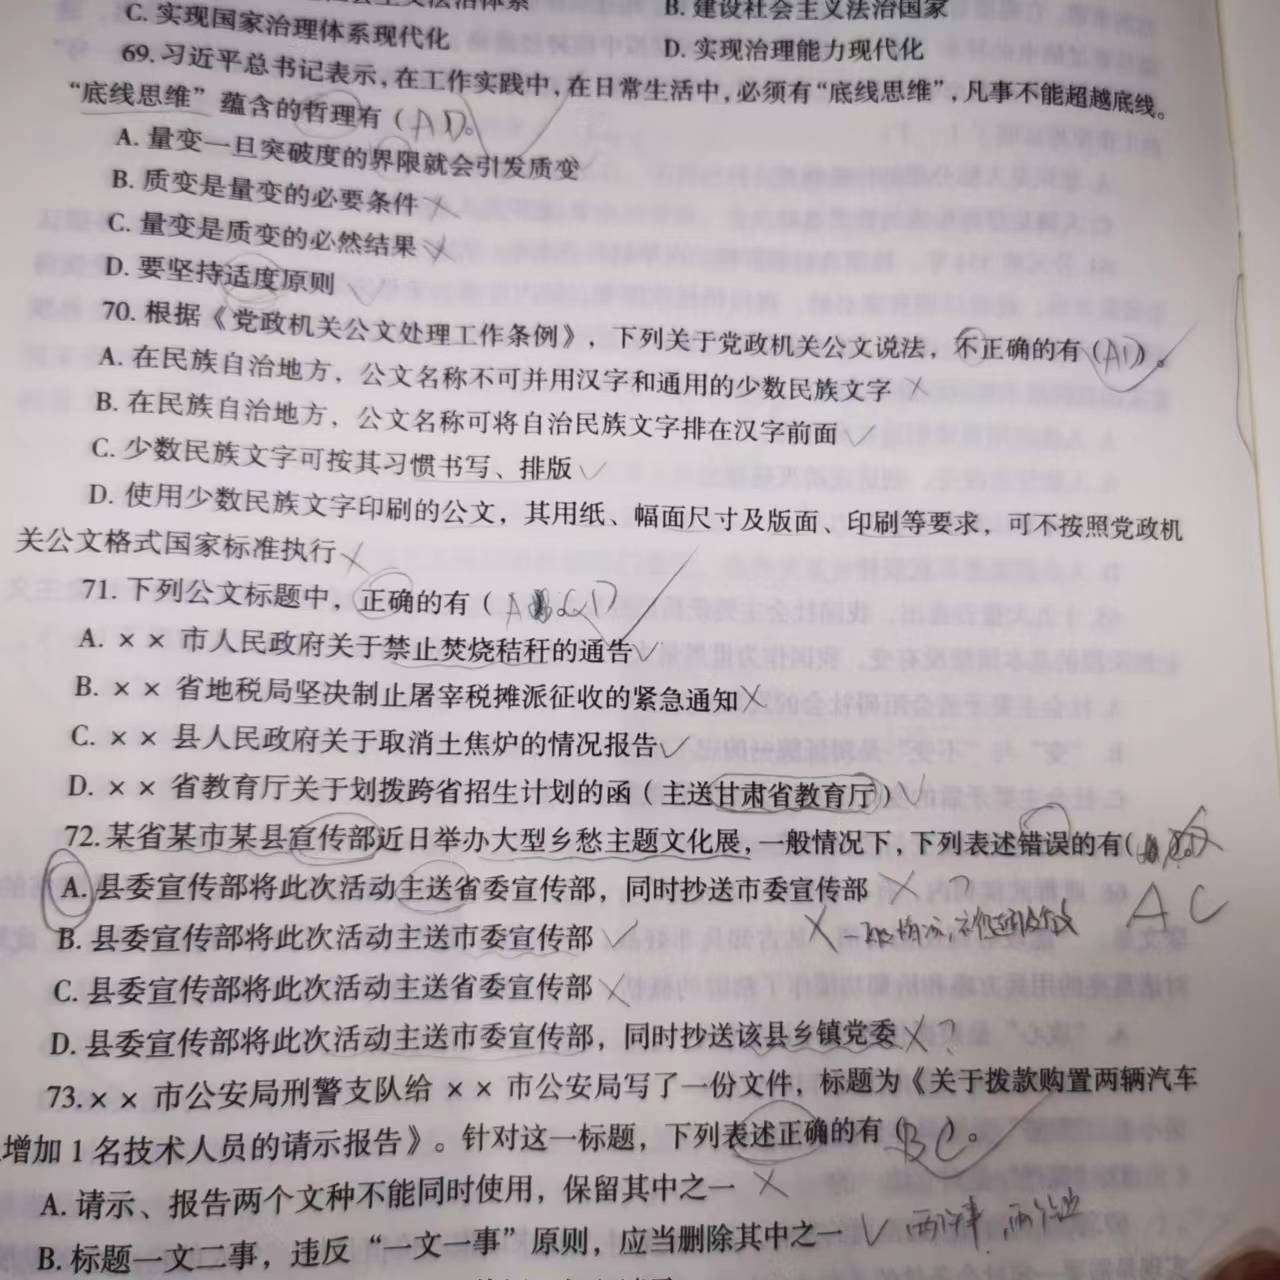 C. 实现国家治理体系现代化
B. 建设社会主义法治国家
D. 实现治理能力现代化
69. 习近平总书记表示,在工作实践中,在日常生活中,必须有“底线思维”,凡事不能超越底线。
“底线思维”蕴含的哲理有（AD。
A. 量变一旦突破度的界限就会引发质变
B. 质变是量变的必要条件
C. 量变是质变的必然结果
D. 要坚持适度原则
70. 根据《党政机关公文处理工作条例》，下列关于党政机关公文说法，不正确的有（AD）。
A. 在民族自治地方，公文名称不可并用汉字和通用的少数民族文字
B. 在民族自治地方，公文名称可将自治民族文字排在汉字前面
C. 少数民族文字可按其习惯书写、排版
D. 使用少数民族文字印刷的公文，其用纸、幅面尺寸及版面、印刷等要求，可不按照党政机
关公文格式国家标准执行
71. 下列公文标题中，正确的有（ACD）
A. ××市人民政府关于禁止焚烧秸秆的通告
B. ××省地税局坚决制止屠宰税摊派征收的紧急通知
C. ××县人民政府关于取消土焦炉的情况报告
D. ××省教育厅关于划拨跨省招生计划的函（主送甘肃省教育厅）
72. 某省某市某县宣传部近日举办大型乡愁主题文化展,一般情况下,下列表述错误的有(
A. 县委宣传部将此次活动主送省委宣传部，同时抄送市委宣传部 ?
AC
B. 县委宣传部将此次活动主送市委宣传部
C. 县委宣传部将此次活动主送省委宣传部
D. 县委宣传部将此次活动主送市委宣传部，同时抄送该县乡镇党委 ?
73.××市公安局刑警支队给××市公安局写了一份文件，标题为《关于拨款购置两辆汽车
增加1名技术人员的请示报告》。针对这一标题，下列表述正确的有（BC）。
A. 请示、报告两个文种不能同时使用，保留其中之一
B. 标题一文二事，违反“一文一事”原则，应当删除其中之一